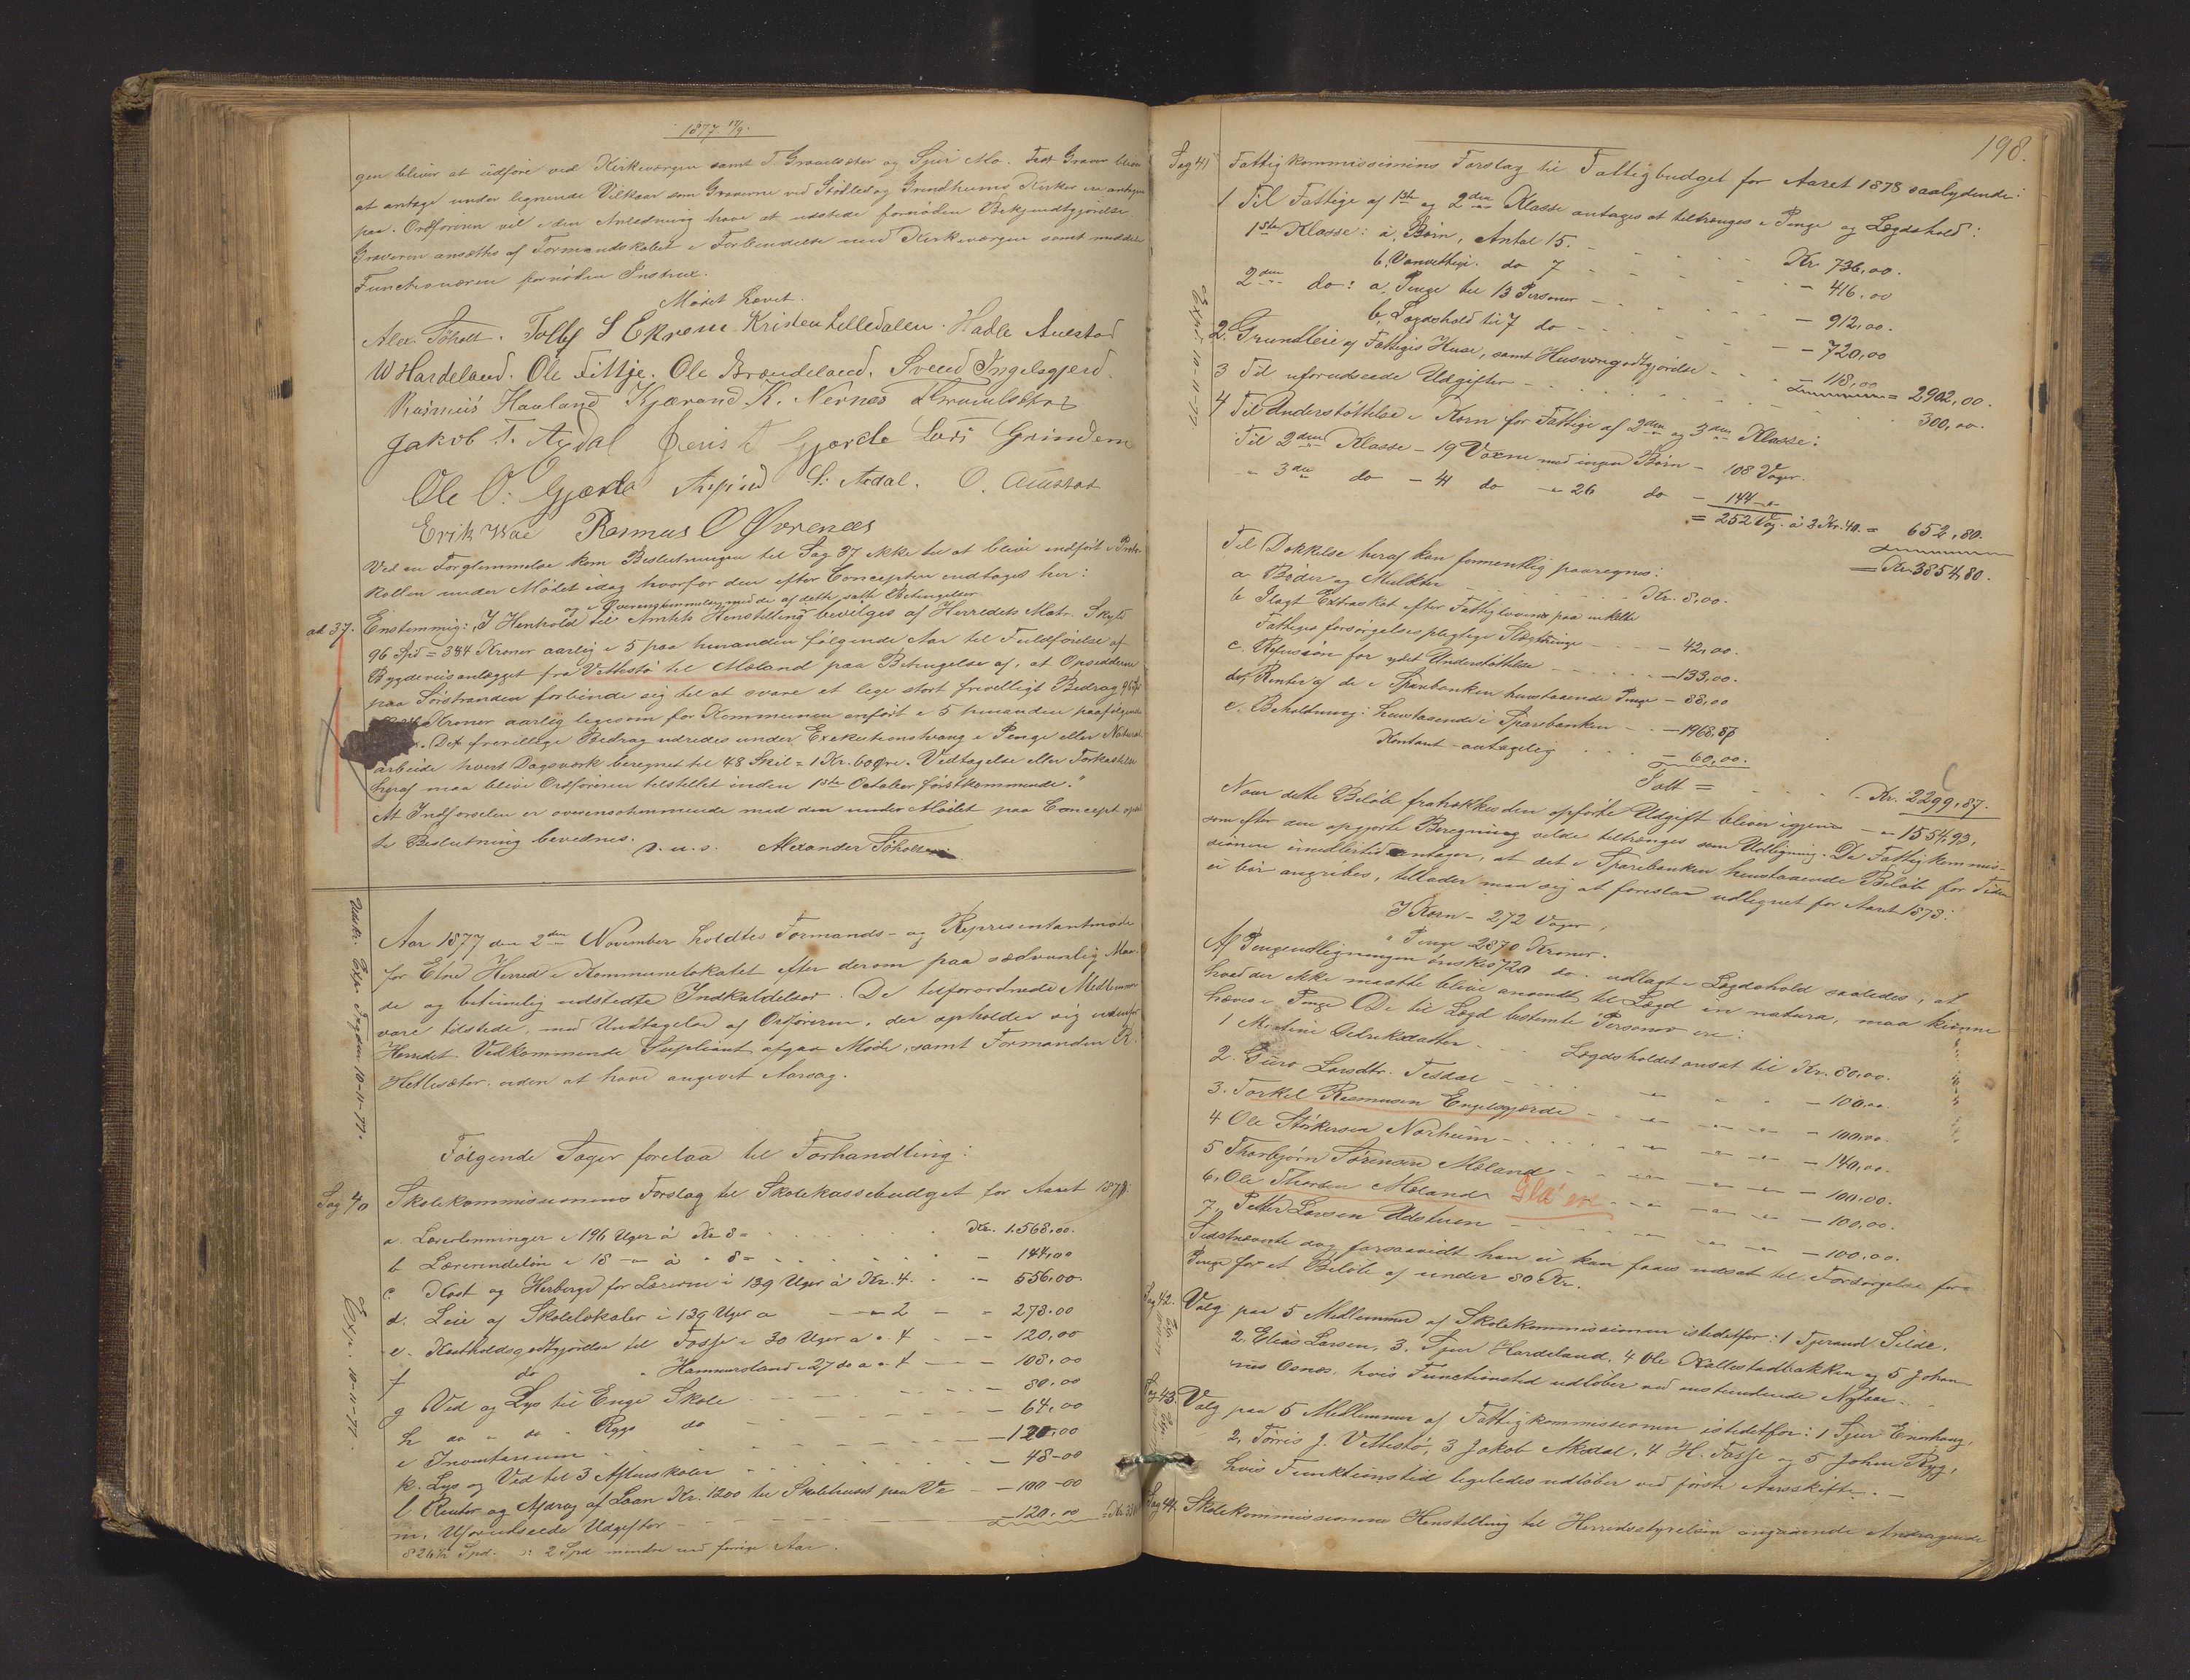 1877. 17/9.
gen bliver at udføre ved Kirkeværgen samt T. Gravelsæter og Sjur Mo. Fast Graver bliver
at antage under lignende Vilkaar som Graverne ved Stødle og Grindheims Kirker er antagen
paa. Ordføreren vil i den Anledning have at udstede fornøden Bekjendtgjørelse.
Graveren ansættes af Formandskabet i Forbindelse med Kirkeværgen samt meddele
Functionæren fornøden Instrux.
Mødet hævet.
Alex. Tøholt. Tolls S Ekrene Kristen Lilledalen. Hadle Austad
W Hardeland. Ole Fittje. Ole Brændeland. Svend Ingelsgjerd.
Rasmus Haaland Kjærand K. Nernes
Jakob T. Axdal Gjærde Lars Grindem
Ole O. Gjærde S. Axdal. O. Austad
Erik Vae Rasmus O Øvrenæs
Ved en Forglemmelse kom Beslutningen til Sag 37 ikke til at blive indført i Proto-
kollen under Mødet idag hvorfor den efter Concepten indtages her:
og i Overensstemmelse med de af dette satte Betingelser
ad 37. Enstemmig: "I Henhold til Amtets Henstilling bevilges af Herredets Matr. Skyld
96 Spd = 384 Kroner aarlig i 5 paa hinanden følgende Aar til Fuldførelse af
Bygdeveisanlægget fra Vettestø til Mæland paa Betingelse af, at Opsidderne
paa Sørstranden forbinde sig til at svare et lige stort frivilligt Bedrag 96 Spd
Kroner aarlig ligesom for Kommunen anført i 5 hinanden paafølgende
Det frivillige Bedrag udredes under Exekutionstvang i Penge eller Natural-
arbeide hvert Dagsværk beregnet til 48 Skil = 1 Kr. 60 Øre. Vedtagelse eller Forkastelse
heraf maa blive Ordføreren tilstillet inden 1ste October førstkommende."
At Indførselen er overensstemmende med den under Mødet paa Concept opsat
te Beslutning bevidnes.
D. u. s. Alexander Tøholt
Udskr. Exp. Fogden 10-11-77.
Aar 1877 den 2den November holdtes Formands- og Representantmøde
for Etne Herred i Kommunelokalet efter derom paa sædvanlig Maa-
de og betimelig udstedte Indkaldelser. De tilforordnede Medlemmer
vare tilstede, med Undtagelse af Ordføreren, der opholder sig udenfor
Herredet. Vedkommende Supleant afgav Møde, samt Formanden R.
Hetlesæter uden at have angivet Aarsag.
Følgende Sager forelaa til Forhandling:
Sag 40 Skolekommissionens Forslag til Skolekassebudget for Aaret 1878.
a. Lærerlønninger i 196 Uger à Kr 8 = Kr. 1.568,00.
b Lærerindeløn i 18 -"- à " 8 = - 144,00
c. Kost og Herberge for Lærerne i 139 Uger à Kr. 4. - 556,00.
d. Leie af Skolelokaler i 139 Uger a -"- 2 - 278,00
e. Kostholdsgodtgjørelse til Fosse i 30 Uger a " 4 - 120,00
f do " Hammersland i 27 do a " 4 - 108,00
g Ved og Lys til Enge Skole - 80,00
h do " do " Rygs do - 64,00
i Inventarium - 120,00
k. Lys og Ved til 3 Aftenskoler - 48-00
l Renter og Afdrag af Laan Kr. 1200 til Skolehuset paa Ve - 100-00
m. Uforudseede Udgifter - 120,00
826½ Spd. 2 Spd mindre end forrige Aar.
Exp. 10-11-77.
198.
Sag 41 Fattigkommissionens Forslag til Fattigbudget for Aaret 1878 saalydende:
1 Til Fattige af 1ste og 2den Klasse antages at tiltrænges i Penge og Lægdshold:
1ste Klasse: a, Børn, Antal 15. Kr. 736,00.
b, Vanvittige. do 7 - 416,00
2den do: a, Penge til 13 Personer - 912,00.
b, Lægdshold til 7 do - 720,00
2. Grundleie af Fattiges Huse, samt Husværegodtgjørelse - 118,00 = 2902,00.
3 Til uforudseede Udgifter 300,00.
4 Til Understøttelse i Korn for Fattige af 2den og 3die Klasse:
Til 2den Klasse - 19 Voxne med ingen Børn - 108 Voger.
" 3die do - 41 do " 26 do - 144 -"-
= 252 Vog. à 2 Kr. 40. = 652,80.
= Kr 3854,80.
Exp. 10-11-77.
Til Dækkelse heraf kan formentlig paaregnes:
a Bøder og Mulkter Kr. 8,00.
b Ilagt Extraskat efter Fattigloven paa enkelte
Fattiges forsørgelsespligtige Slægtninge - 42,00.
c. Refusion for ydet Understøttelse - 133,00.
d, Renter af de i Sparebanken henstaaende Penge - 88,00
e. Beholdning: henstaaende i Sparebanken - 1968,87
Kontant - antagelig - 60,00.
Ialt = Kr. 2299,87.
Naar dette Beløb fratrækkes den opførte Udgift bliver igjen - " 1554,93,
som efter den opgjorte Beregning vilde tiltrænges som Udligning. Da Fattigkommis-
sionen imidlertid antager, at det i Sparebanken henstaaende Beløb for Tiden
ei bør angribes, tillader man sig at foreslaa udlignet for Aaret 1878:
I Korn - 272 Voger,
" Penge - 2870 Kroner.
Af Pengeudligningen ønskes 720 do. udlagt i Lægdshold saaledes, at
hvad der ikke maatte blive anvendt til Lægd in natura, maa kunne
hæves i Penge. De til Lægd bestemte Personer ere:
1 Martine Didriksdatter Lægdsholdet ansat til Kr. 80,00.
2. Guro Larsdtr. Tesdal - 100,00
3. Torkel Rasmusen Engelsgjærde - 100,00.
4 Ole Størkersen Norheim - 140,00.
5 Thorbjørn Sørensen Mæland - 100,00.
6, Ole Thorsen Mæland - 100,00.
7, Petter Larsen Udstuen - 100,00.
Sidstnævnte dog forsaavidt han ei kan faaes udsat til Forsørgelse for
Penge for et Beløb af under 80 Kr.
Sag 42. Valg paa 5 Medlemmer af Skolekommissionen istedetfor: 1 Tjerand Silde,
2. Elias Larsen, 3. Sjur Hardeland, 4 Ole Kallestadbakken og 5 Johan-
nes Osnes, hvis Functionstid udløber ved instundende Nytaar.
Sag 43. Valg paa 5 Medlemmer af Fattigkommissionen istedetfor: 1 Sjur Enerhaug,
2, Tørris J. Vettestø, 3 Jakob Aksdal, 4 H. Fosse og 5 Johan Ryg,
hvis Funktionstid ligeledes udløber ved første Aarsskifte. -
Sag 44. Skolekommissionens Henstilling til Herredsstyrelsen angaaende Andragende